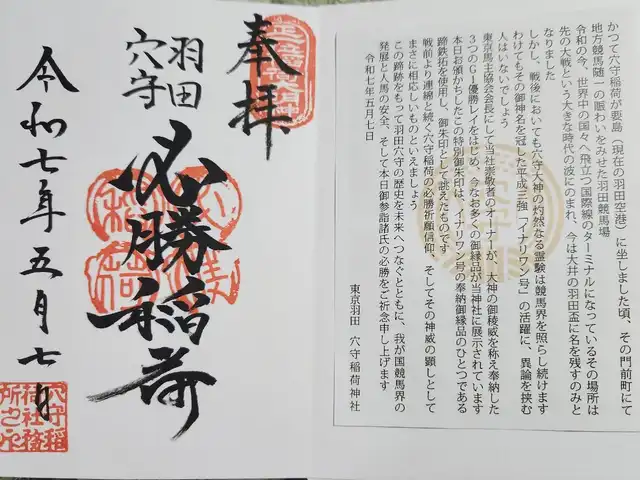 かつて穴守稲荷が要島（現在の羽田空港）に坐しました頃、その門前町にて
地方競馬随一の賑わいをみせた羽田競馬場
令和の今、世界中の国々へ飛立つ国際線のターミナルになっているその場所は
先の大戦という大きな時代の波にのまれ、今は大井の羽田盃に名を残すのみと
なりました
しかし、戦後においても穴守大神の灼然なる霊験は競馬界を照らし続けます
わけてもその御神名を冠した平成三強「イナリワン号」の活躍に、異論を挟む
人はいないでしょう
東京馬主協会会長にして当社崇敬者のオーナーが、大神の御稜威を称え奉納した
3つのG1優勝レイをはじめ、今なお多くの御縁品が当神社に展示されています
本日お頒かちしたこの特別御朱印は、イナリワン号の奉納御縁品のひとつである
蹄鉄拓を使用し、御朱印として誂えたものです
戦前より連綿と続く穴守稲荷の必勝祈願信仰、そしてその神威の顕しとして
まさに相応しいものといえましょう
この蹄跡をもって羽田穴守の歴史を未来へつなぐとともに、我が国競馬界の
発展と人馬の安全、そして本日御参詣諸氏の必勝をご祈念申し上げます
令和七年五月七日
東京羽田 穴守稲荷神社
奉拝
羽田
穴守
必勝稲荷
令和七年五月七日
穴守稲
荷社務
所之印